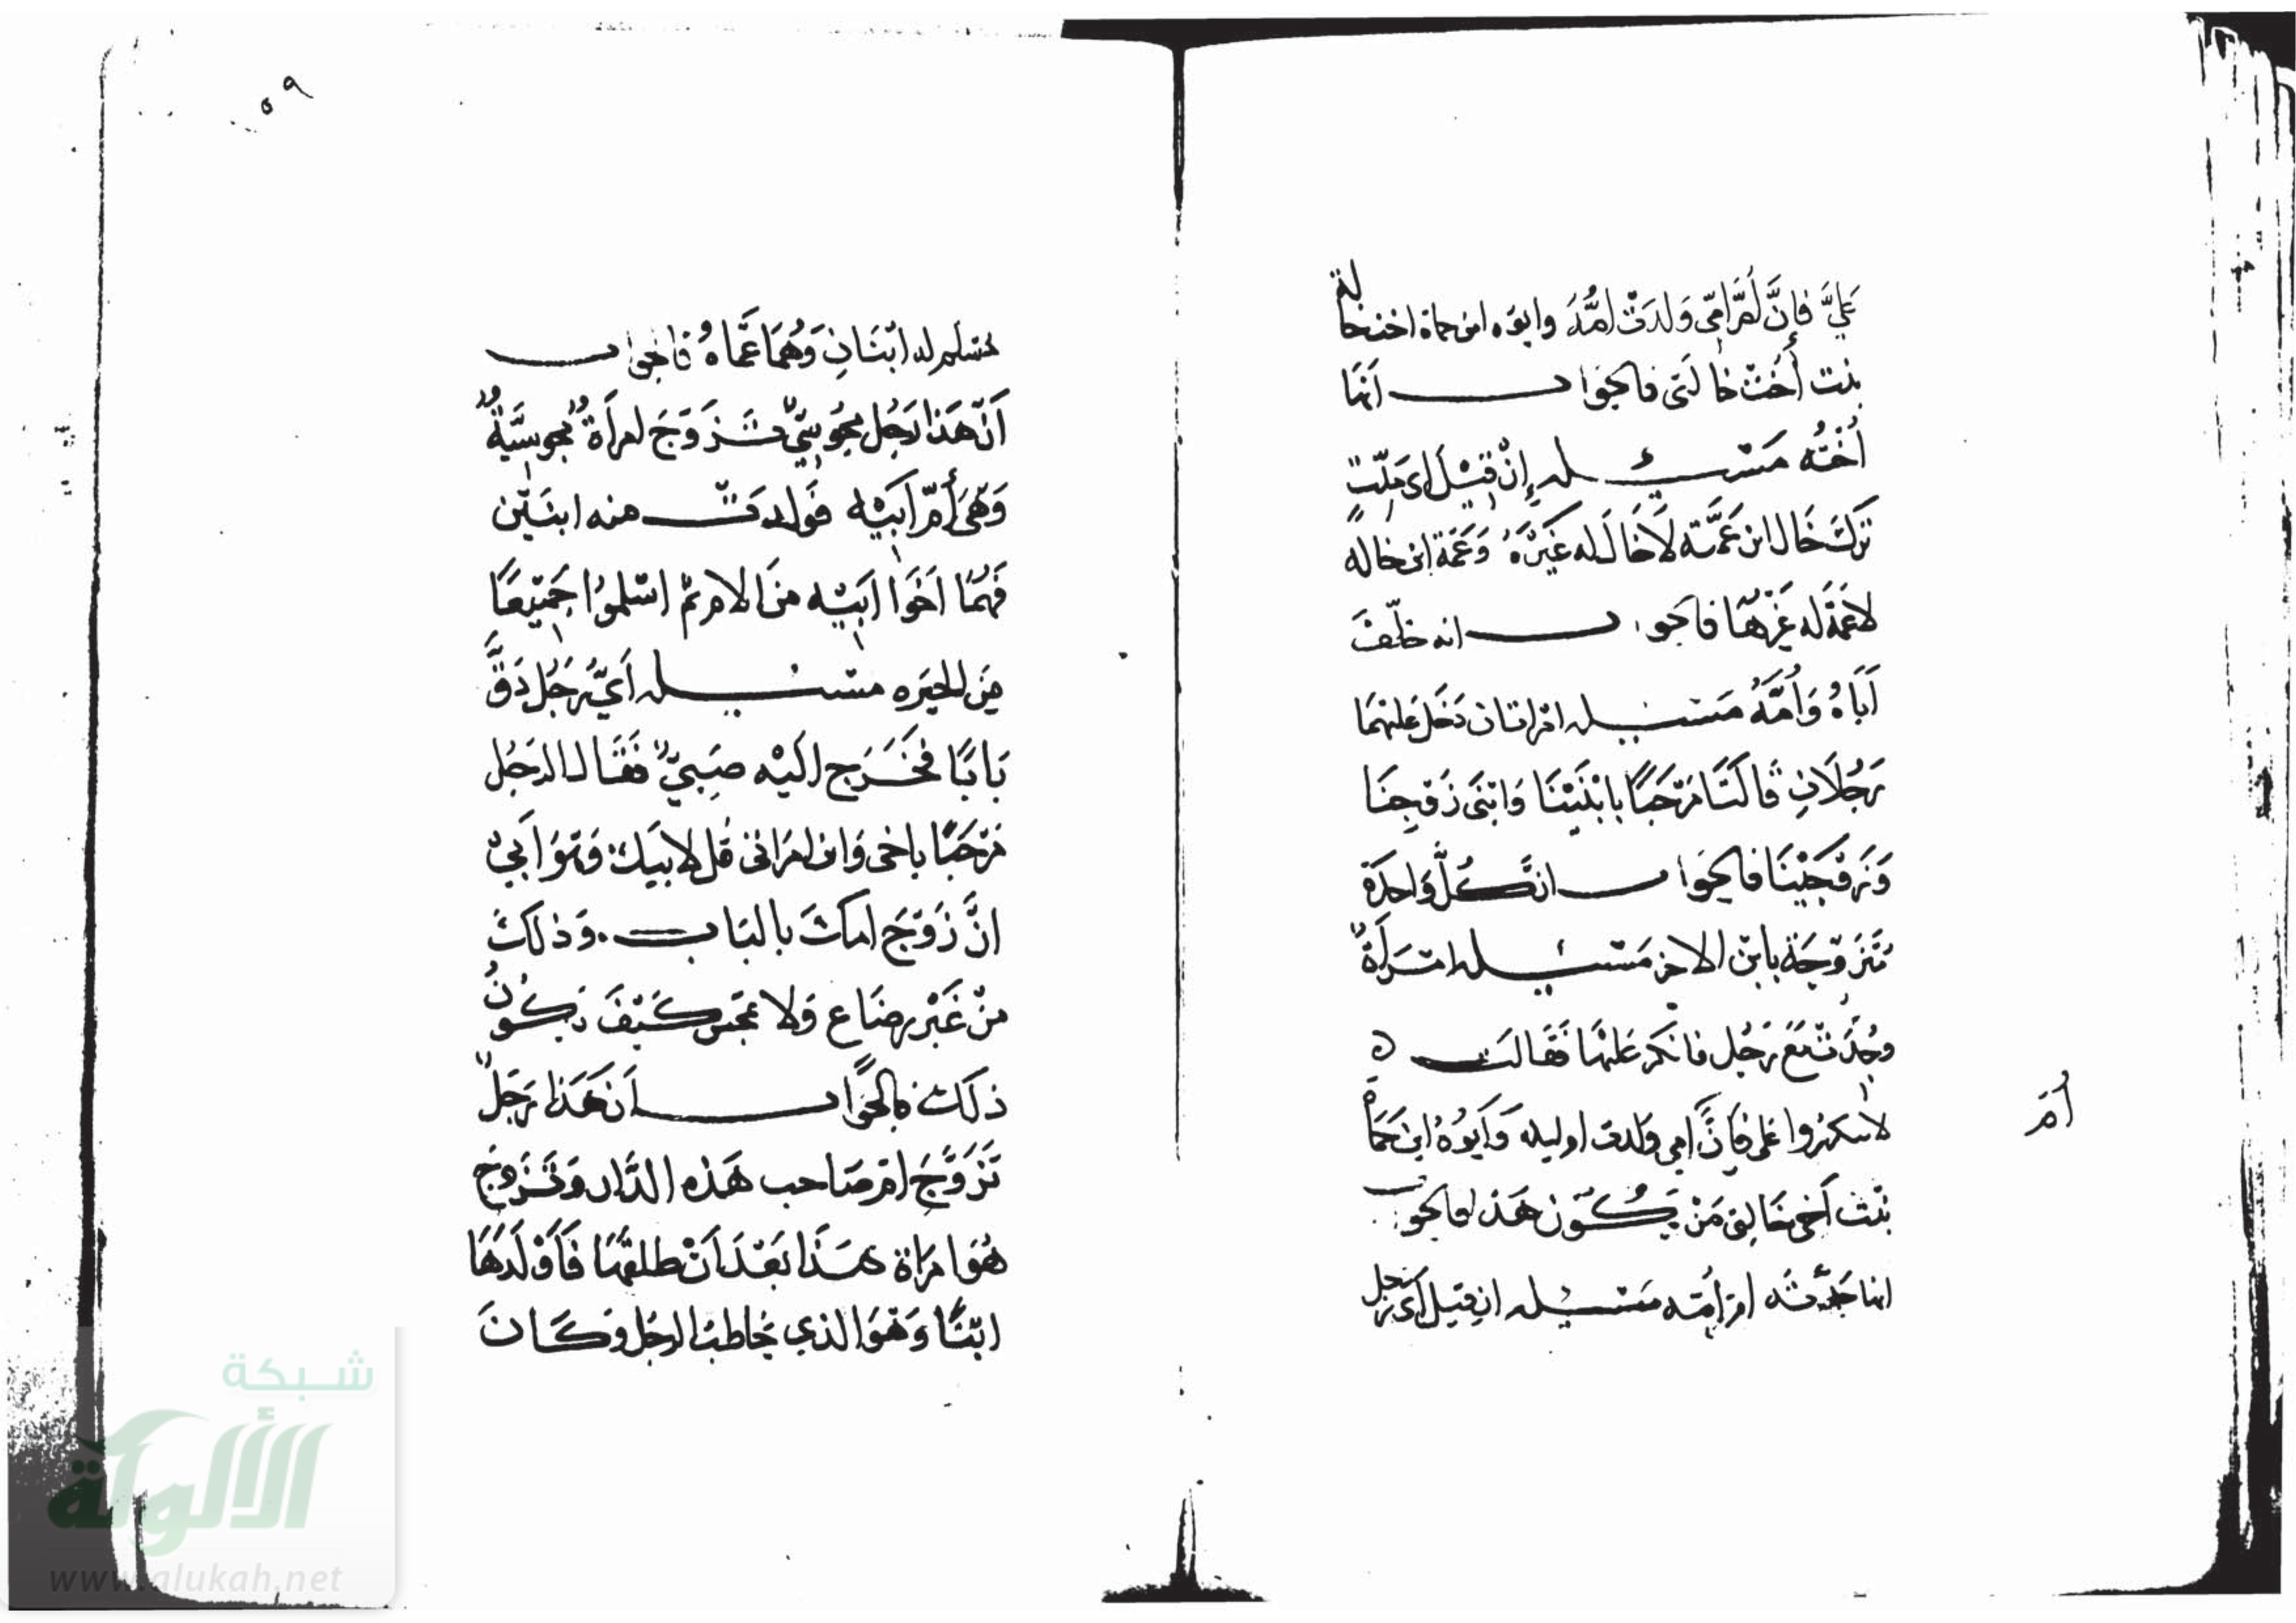 عَلَيَّ فإنَّ أمَّ أمّي وَلدَتْ أمُّهُ وابوه ابن حماة اخت خالة
بنت أُخْت خالَتى فالجواب أنها
أُخْتُه مَسْئله إنْ قِيْلَ اى مَيّتٍ
تَركَ خَال ابن عَمَّته لَا خَالَ له غَيْرَهُ وَعَمّة ابن خاله
لا عَمّةَ له غَيْرَهَا فالجواب انه خلّفَ
أَبَاهُ وَأُمَّهُ مَسْئله امراتان دَخَلَ عَليْهمَا
رَجُلَانِ فَالَتَا مَرْحَبًا بابْنَيْنَا وَابْنَى زَوْجِنَا
وَزَوْجَيْنَا فالجَواب انَّ كُلَّ وَاحدَة
مُتَزَوّجَة بابْن الاخرى مَسْئله امْرَأَةٌ
وُجِدَتْ مَعَ رَجُل فانكر عَليْهَا فَقَالَت ه
لا تنكروا على فإنَّ امي ولدت ام ليله وَأَبُوهُ ابن حَمَاة
بنْت أخى خَالتى مَنْ يَكُون هَذا فالجَواب
انها جَدَّته ام أمّه مَسْئله ان قيل أى رجل
أمّ
٥٩
مسلم له ابْنَانِ وَهُمَا عَمَّاهُ فالجواب
أنّ هَذا رَجُل مجُوسيّ تَزَوَّجَ امرأة مجوسيَّةً
وَهى أمّ أبَيْه فَوَلدَتْ منه ابنَيْن
فَهُمَا أخَوَا ابَيْه منَ الام ثمّ اسْلموُا جَميْعًا
مِنَ الحيَره مسْئله أَيّ رَجُل دَقَّ
بَابًا فَخَرَج الَيْه صَبيّ فَقَال الرَجُل
مَرْحَبًا باخى وَابن امرَاتى قُل لابيك وَهوَ أَبى
انَّ زَوْجَ امك بالبَاب وَذلك
منْ غَيْر رضَاع وَلا تمَجس كَيْفَ يَكُونُ
ذلك فالجَواب أنّ هَذا رَجُلٌ
تَزَوَّجَ امّ صَاحب هَذه الدَّار وَتَزَوج
هُوَ امرَاة هَذَا بَعْدَ أنْ طلقهَا فَأوْلَدَهَا
ابْنًا وَهُوَ الذي خَاطبهُ الرجُل وَكَانَ
شبكة
الألوكة
www.alukah.net